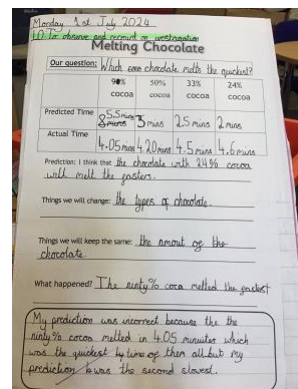 Monday 1st July 2024
L.O. To observe and record an investigation
Melting Chocolate
Our question: Which one chocolate melts the quickest?
90% cocoa 50% cocoa 33% cocoa 24% cocoa
Predicted Time 5.5 mins 3 mins 2.5 mins 2 mins
Actual Time 4.05 mins 4.20 mins 4.5 mins 4.6 mins
Prediction: I think that the chocolate with 24% cocoa
will melt the fasters.
Things we will change: the types of chocolate.
Things we will keep the same: the amout of the
chocolate.
What happened? The ninty% coco melted the quickest
My prediction was incorrect because the the
ninty% cocoa melted in 4.05 minutes which
was the quickest of them all but my
prediction was the second slowest.